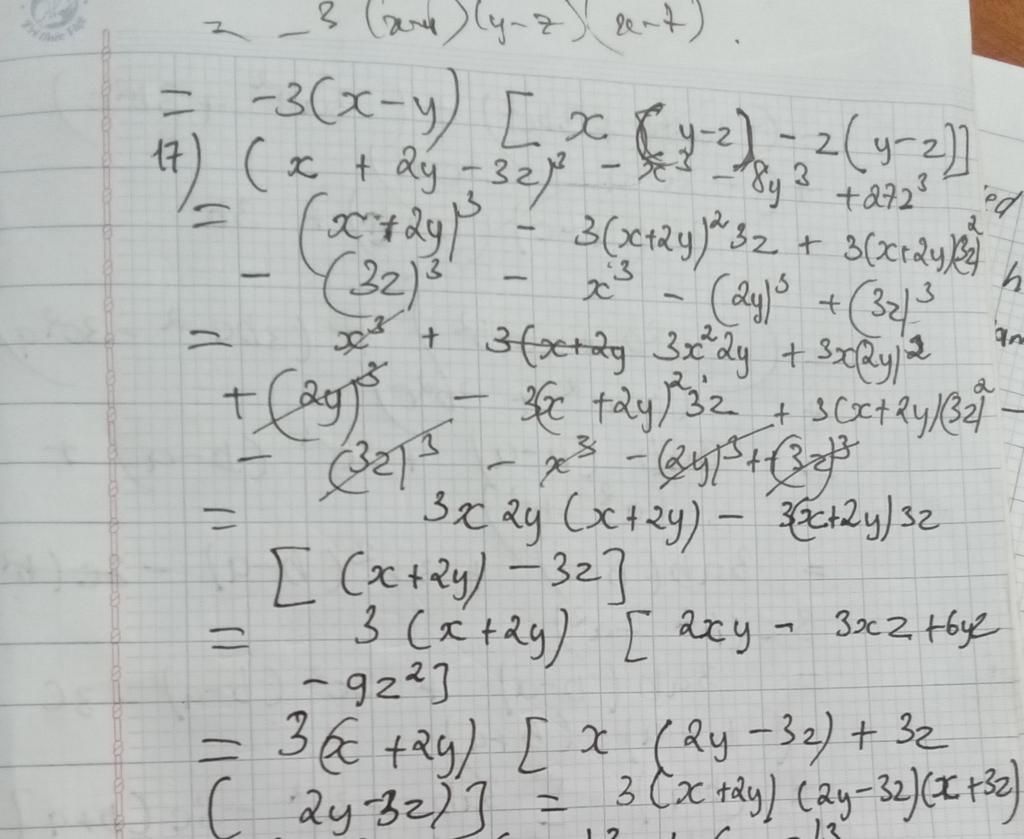 = -3(x-y)(y-z)(x-z).
= -3(x-y) [x (y-z) - z(y-z)]
17) (x + 2y - 3z)³ - x³ - 8y³ + 27z³
= (x+2y)³ - 3(x+2y)² 3z + 3(x+2y)(3z)²
- (3z)³ - x³ - (2y)³ + (3z)³
= x³ + 3(x+2y 3x² 2y + 3x(2y)²
+ (2y)³ - 3(x+2y)² 3z + 3(x+2y)(3z)² -
- (3z)³ - x³ - (2y)³ + (3z)³
= 3x 2y (x+2y) - 3(x+2y) 3z
[ (x+2y) - 3z ]
= 3 (x+2y) [ 2xy - 3xz + 6yz
- 9z² ]
= 3(x+2y) [ x (2y-3z) + 3z
( 2y-3z) ] = 3(x+2y) (2y-3z)(x+3z)